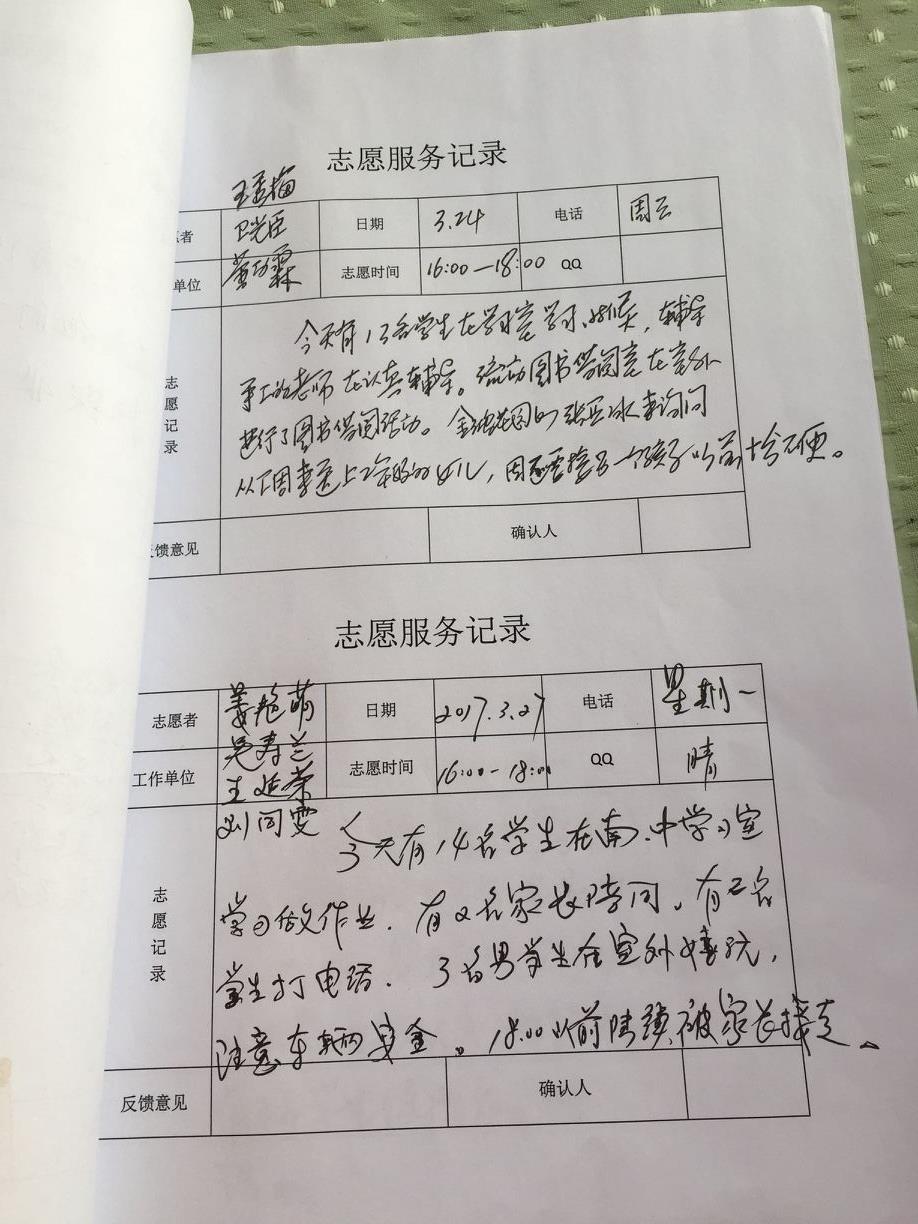 志愿服务记录
愿者 卫光臣 日期 3.24 电话 周三
单位 霖 志愿时间 16:00—18:00 QQ
志愿记录
今天有13名学生在学习室学习、
老师在认真辅导。流动图书借阅室在室外
进行了图书借阅活动。金 花园的 来询问
从下周 上2年级的女儿，因 一个孩子以前十分不便。
反馈意见 确认人
志愿服务记录
志愿者 姜艳萌 日期 2017.3.27 电话 星期一
吴寿兰
工作单位 王延荣 志愿时间 16:00-18:00 QQ 晴
刘同雯
志愿记录
今天有14名学生在南、中学习室
学习做作业. 有2名家长陪同. 有2名
学生打电话. 3名男学生在室外嬉玩,
注意车辆安全。18:00以前陆续被家长接走。
反馈意见 确认人